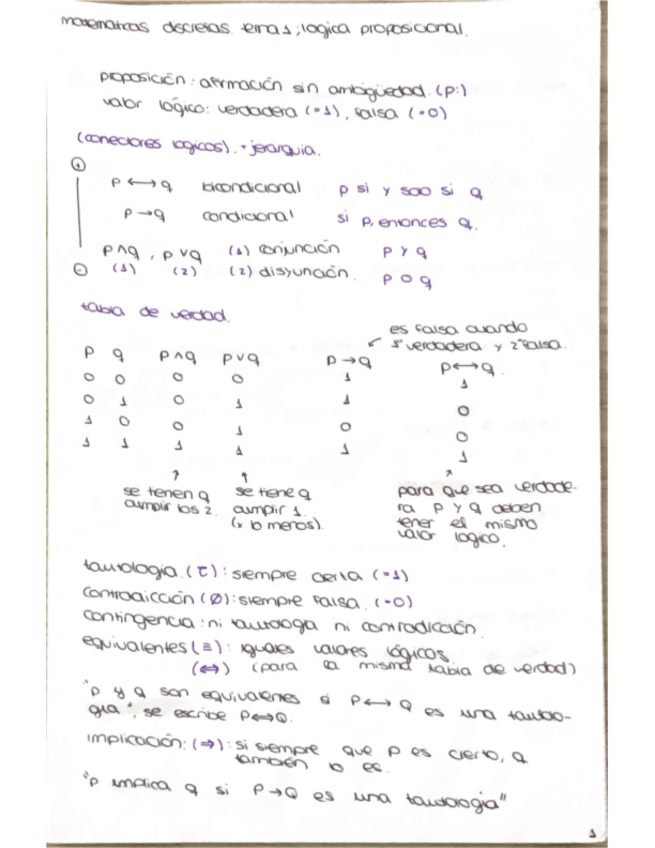 matematicas discretas. tema 1; logica proposicional.
proposición: afirmación sin ambigüedad. (p:)
valor lógico: verdadera (=1), falsa (=0)
(conectores logicos). + jerarquia.
+
p ⟷ q bicondicional p si y solo si q
p → q condicional si p, entonces q.
p ∧ q , p ∨ q (1) conjunción p y q
- (1) (2) (2) disyunción. p o q
tabla de verdad.
es falsa cuando
1ª verdadera y 2ª falsa.
p q p∧q p∨q p→q p⟷q.
0 0 0 0 1 1
0 1 0 1 1 0
1 0 0 1 0 0
1 1 1 1 1 1
se tienen q cumplir los 2.
se tiene q cumplir 1. (x lo menos).
para que sea verdade-
ra p y q deben
tener el mismo
valor logico.
tautologia. (τ): siempre cierta (=1)
contradicción (Ø): siempre falsa. (=0)
contingencia: ni tautologia ni contradicción.
equivalentes (≡): iguales valores lógicos.
(⟺) (para la misma tabla de verdad)
"p y q son equivalenes si P⟷Q es una tautolo-
gia", se escribe P⟺Q.
implicación: (⇒): si siempre que p es cierto, q
también lo es.
"p implica q si P→Q es una tautologia"
1